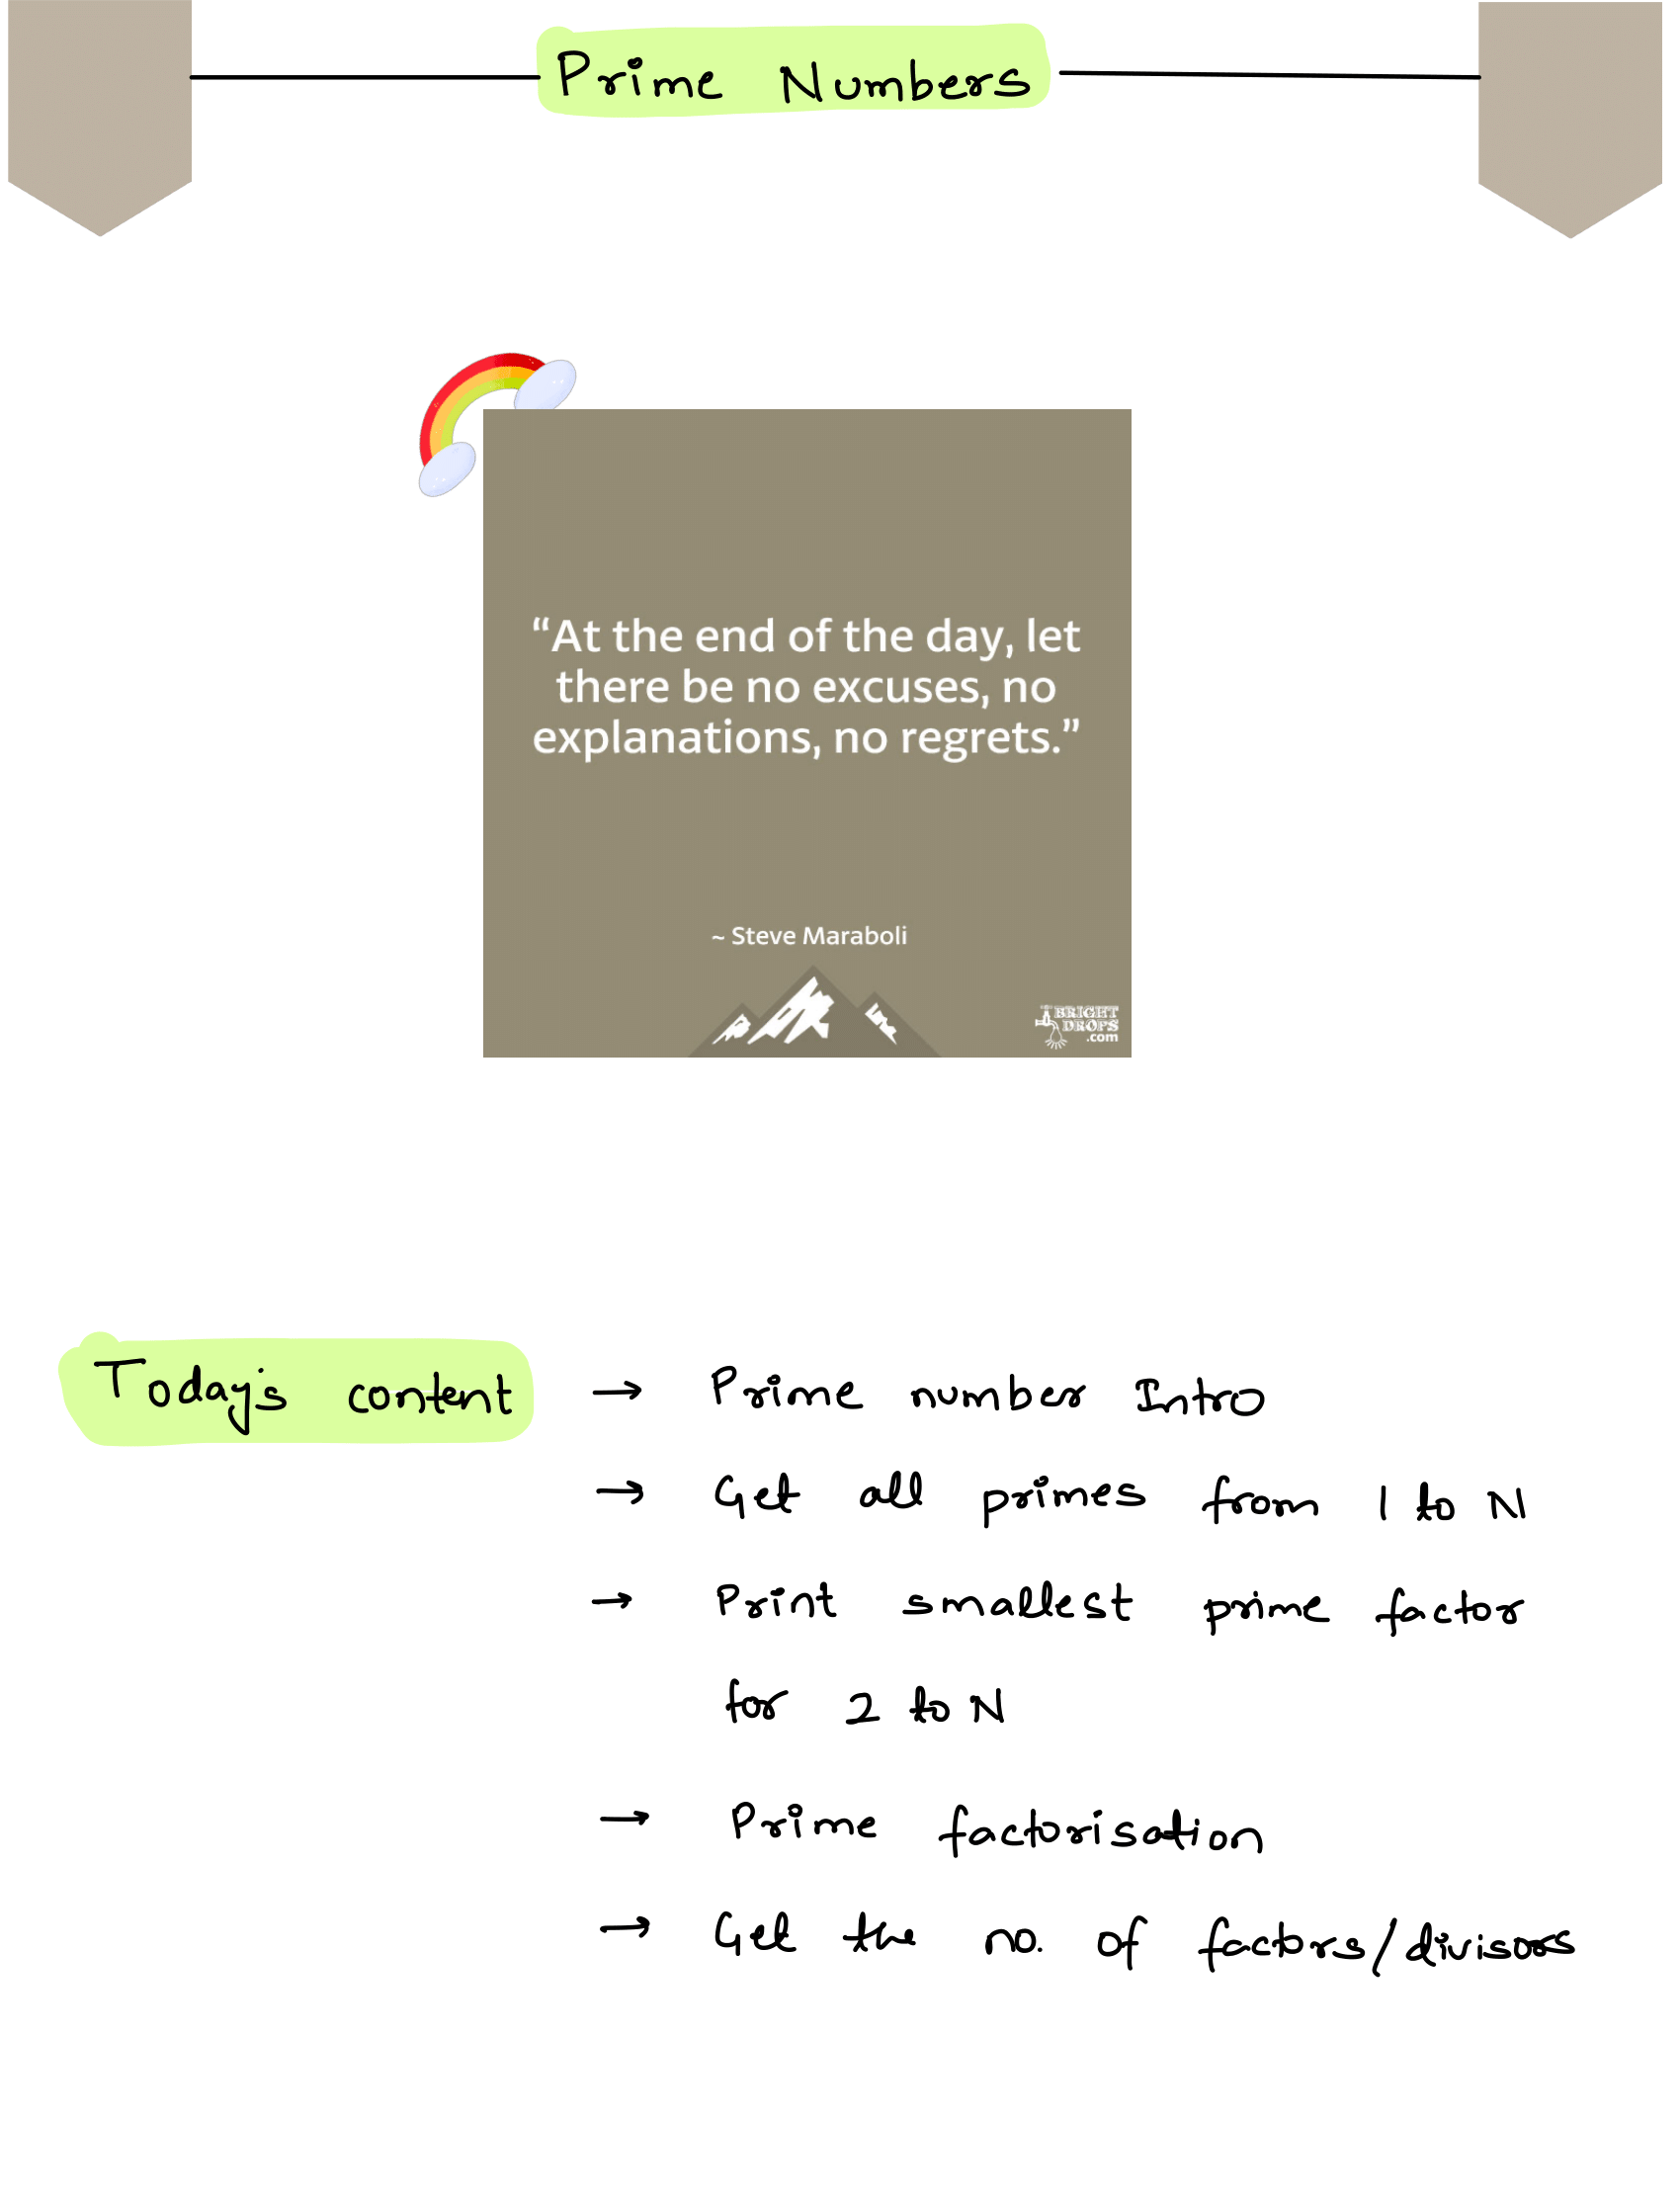 Prime Numbers
“At the end of the day, let
there be no excuses, no
explanations, no regrets.”
~ Steve Maraboli
BRIGHT
DROPS
.com
Today's content → Prime number Intro
→ Get all primes from 1 to N
→ Print smallest prime factor
for 2 to N
→ Prime factorisation
→ Get the no. of factors/divisors